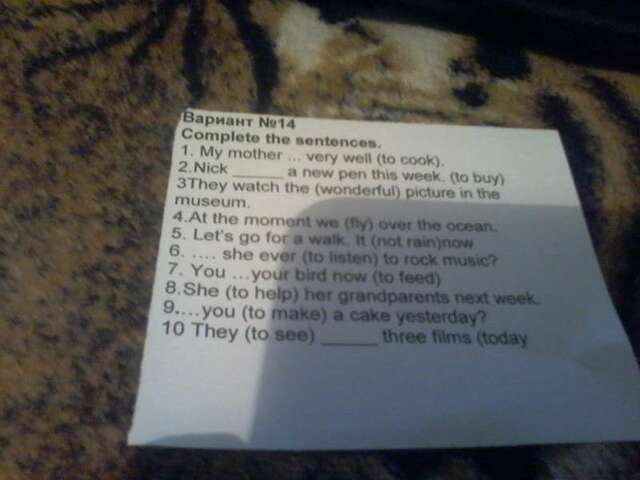 Вариант №14
Complete the sentences.
1. My mother ... very well (to cook).
2.Nick ______ a new pen this week. (to buy)
3They watch the (wonderful) picture in the
museum.
4.At the moment we (fly) over the ocean.
5. Let's go for a walk. It (not rain)now
6. .... she ever (to listen) to rock music?
7. You ...your bird now (to feed)
8.She (to help) her grandparents next week.
9....you (to make) a cake yesterday?
10 They (to see) ______ three films (today